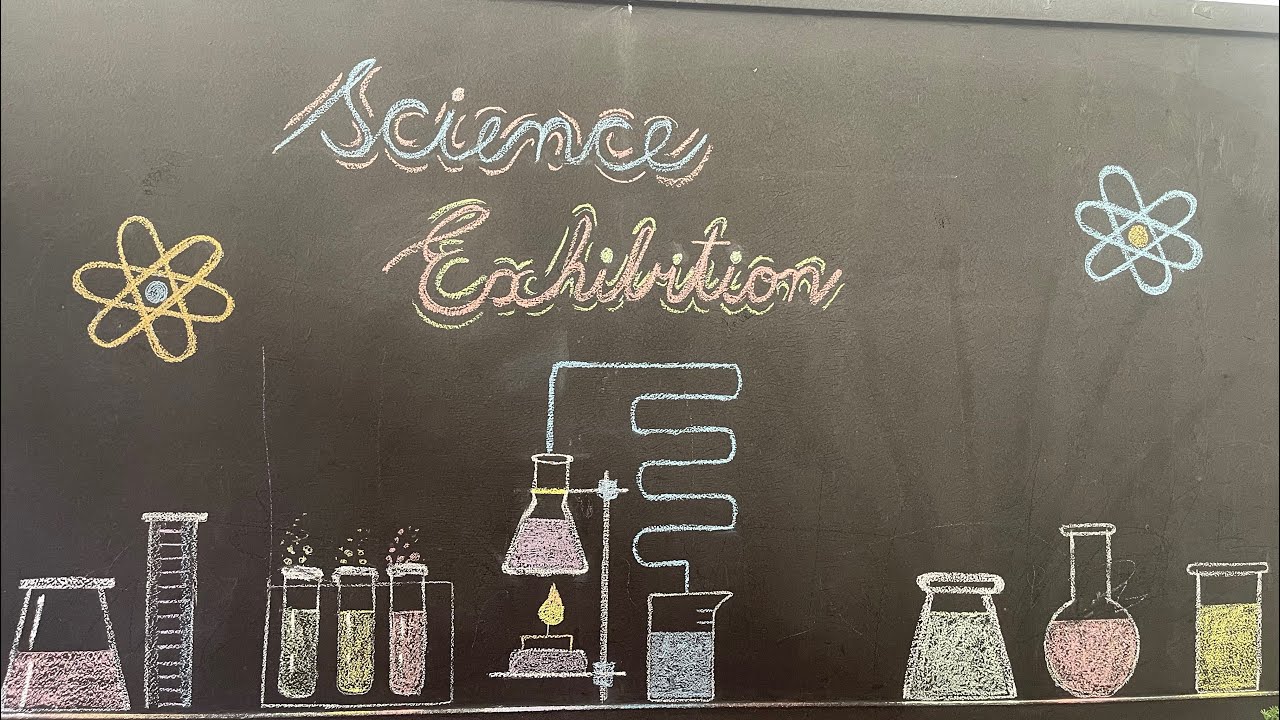 Science
Exhibition